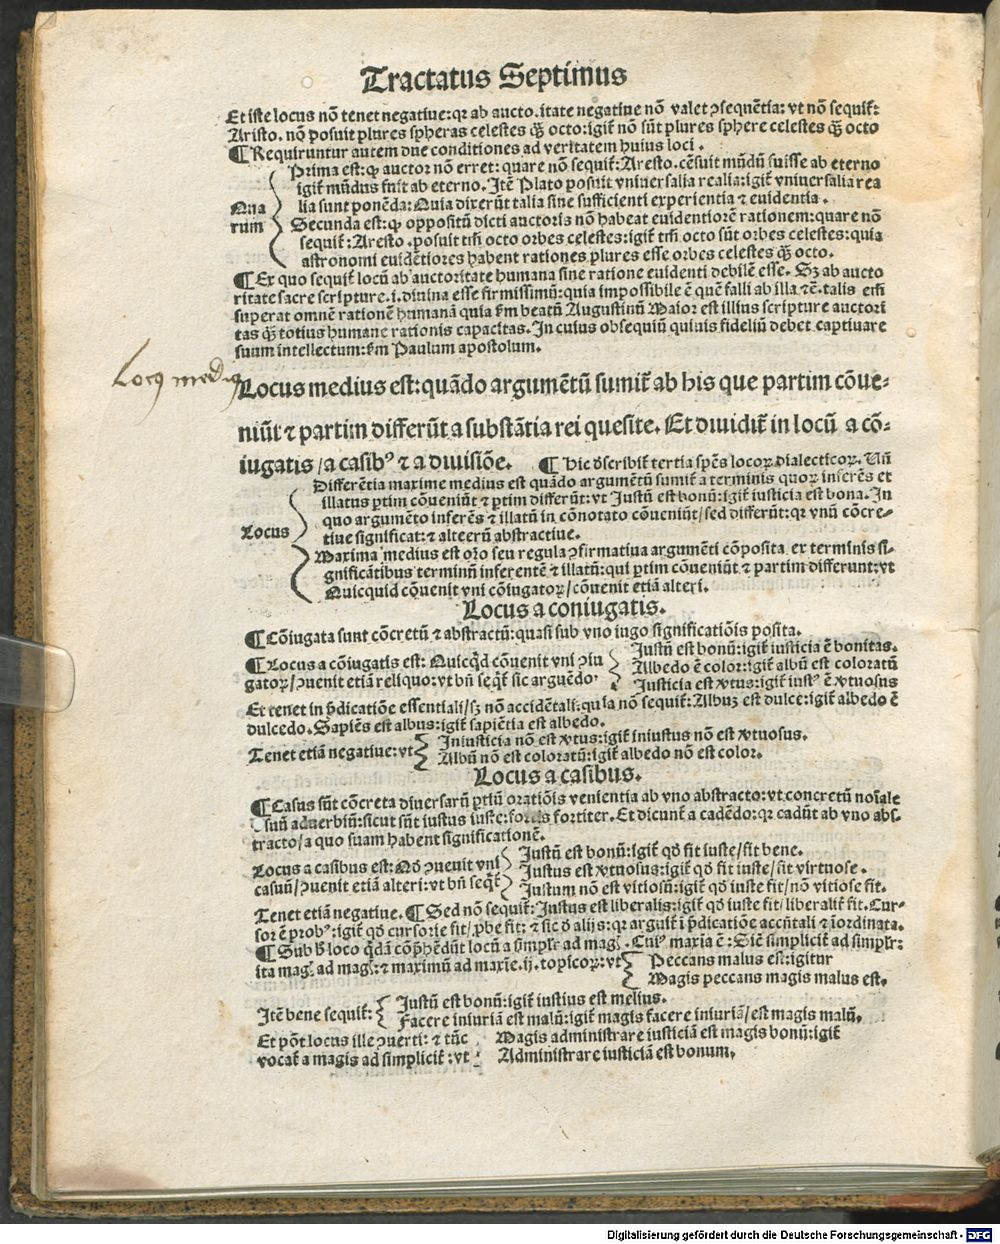 Tractatus Septimus
Et iste locus nō tenet negatiue: qꝛ ab aucto.itate negatiue nō valet ↄsequētia: vt nō sequit̄:
Aristo. nō posuit plures spheras celestes qꝫ̄ octo: igit̄ nō sūt plures sphere celestes qꝫ̄ octo
¶ Requiruntur autem due conditiones ad veritatem huius loci.
Prima est: ꝙ auctor nō erret: quare nō sequit̄: Aresto. cēsuit mūdū fuisse ab eterno
igit̄ mūdus fuit ab eterno. Itē Plato posuit vniuersalia realia: igit̄ vniuersalia rea
Qua
lia sunt ponēda: Quia dixerūt talia sine sufficienti experientia ⁊ euidentia.
rum
Secunda est: ꝙ oppositū dicti auctoris nō habeat euidentiorē rationem: quare nō
sequit̄: Aresto. posuit tm̄ octo orbes celestes: igit̄ tm̄ octo sūt orbes celestes: quia
astronomi euidētiores habent rationes plures esse orbes celestes qꝫ̄ octo.
¶ Ex quo sequit̄ locū ab auctoritate humana sine ratione euidenti debilē esse. Sꝫ ab aucto
ritate sacre scripture .i. diuina esse firmissimū: quia impossibile ē quē falli ab illa ⁊ē. talis em̄
superat omnē rationē humanā quia ẜm beatū Augustinū Maior est illius scripture auctori
tas qꝫ̄ totius humane rationis capacitas. In cuius obsequiū quiuis fideliū debet captiuare
suum intellectum: ẜm Paulum apostolum.
Locꝰ mediꝰ
Locus medius est: quādo argumētū sumit̄ ab his que partim cōue-
niūt ⁊ partim differūt a substātia rei quesite. Et diuidit̄ in locū a cō-
iugatis / a casibꝰ ⁊ a diuisiōe. ¶ Hic dscribit̄ tertia spēs locoꝝ dialecticoꝝ. Uñ
Differētia maxime medius est quādo argumētū sumit̄ a terminis quoꝝ inferēs et
illatus ꝑtim cōueniūt ⁊ ꝑtim differūt: vt Iustū est bonū: igit̄ iusticia est bona. In
quo argumēto inferēs ⁊ illatū in cōnotato cōueniūt / sed differūt: qꝛ vnū cōcre-
Locus
tiue significat: ⁊ alteerū abstractiue.
Maxima medius est oro seu regula ↄfirmatiua argumēti cōposita ex terminis si-
gnificātibus terminū inferentē ⁊ illatū: qui ꝑtim cōueniūt ⁊ partim differunt: vt
Quicquid cōuenit vni cōiugatoꝝ / cōuenit etiā alteri.
Locus a coniugatis.
¶ Cōiugata sunt cōcretū ⁊ abstractū: quasi sub vno iugo significatiōis posita.
Iustū est bonū: igit̄ iusticia ē bonitas.
¶ Locus a cōiugatis est: Quicqd cōuenit vni ↄiu
Albedo ē color: igit̄ albū est coloratū
gatoꝝ / ↄuenit etiā reliquo: vt bñ seqt̄ sic arguēdo:
Iusticia est x̄tus: igit̄ iustꝰ ē x̄tuosus
Et tenet in p̄dicatiōe essentiali / sꝫ nō accidētali. quia nō sequit̄: Albuꝫ est dulce: igit̄ albedo ē
dulcedo. Sapiēs est albus: igit̄ sapiētia est albedo.
Tenet etiā negatiue: vt
Iniusticia nō est x̄tus: igit̄ iniustus nō est x̄tuosus.
Albū nō est coloratū: igit̄ albedo nō est color.
Locus a casibus.
¶ Casus sūt cōcreta diuersarū ꝑtiū oratiōis venientia ab vno abstracto: vt concretū noīale
suū aduerbiū: sicut sūt iustus iuste: fortis fortiter. Et dicunt̄ a cadēdo: qꝛ cadūt ab vno abs.
tracto / a quo suam habent significationē.
Locus a casibus est: Qd ↄuenit vni
Iustū est bonū: igit̄ qd fit iuste / fit bene.
Iustus est x̄tuosus: igit̄ qd fit iuste / fit virtuose.
casuū / ↄuenit etiā alteri: vt bñ seqt̄
Iustum nō est vitiosū: igit̄ qd iuste fit / nō vitiose fit.
Tenet etiā negatiue. ¶ Sed nō sequit̄: Iustus est liberalis: igit̄ qd iuste fit / liberalit̄ fit. Cur-
sor ē probꝰ: igit̄ qd cursorie fit / ꝓbe fit: ⁊ sic d alijs: qꝛ arguit̄ ī p̄dicatiōe accñtali ⁊ iordinata.
¶ Sub loco qdā cōp̄hēdūt locū a simplr ad mag. Cuiꝰ maxia ē: Sicē simplicit̄ ad simplr:
ita mag. ad mag: ⁊ maximū ad maxīe. ij. topicoꝝ: vt
Peccans malus est: igitur
Magis peccans magis malus est.
Itē bene sequit̄:
Iustū est bonū: igit̄ iustius est melius.
Facere iniuriā est malū: igit̄ magis facere iniuriā / est magis malū.
Et pōt locus ille ↄuerti: ⁊ tūc
vocat̄ a magis ad simplicit̄: vt
Magis administrare iusticiā est magis bonū: igit̄
Administrare iusticiā est bonum.
Digitalisierung gefördert durch die Deutsche Forschungsgemeinschaft - DFG